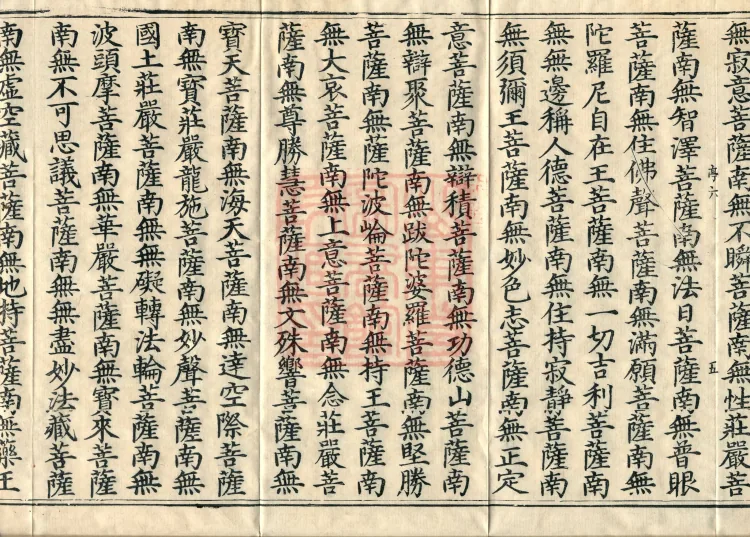 無寂意菩薩南無不瞬菩薩南無性莊嚴菩
薩南無智澤菩薩南無法日菩薩南無普眼
菩薩南無住佛聲菩薩南無滿願菩薩南無
陀羅尼自在王菩薩南無一切吉利菩薩南
無無邊稱人德菩薩南無住持寂靜菩薩南
無須彌王菩薩南無妙色志菩薩南無正定
意菩薩南無辯積菩薩南無功德山菩薩南
無辯聚菩薩南無跋陀婆羅菩薩南無堅勝
菩薩南無薩陀波崘菩薩南無持王菩薩南
無大哀菩薩南無上意菩薩南無念莊嚴菩
薩南無尊勝慧菩薩南無文殊響菩薩南無
寶天菩薩南無海天菩薩南無達空際菩薩
南無寶莊嚴龍施菩薩南無妙聲菩薩南無
國土莊嚴菩薩南無無礙轉法輪菩薩南無
波頭摩菩薩南無華嚴菩薩南無寶來菩薩
南無不可思議菩薩南無無盡妙法藏菩薩
南無虛空藏菩薩南無地持菩薩南無藥王
六
五